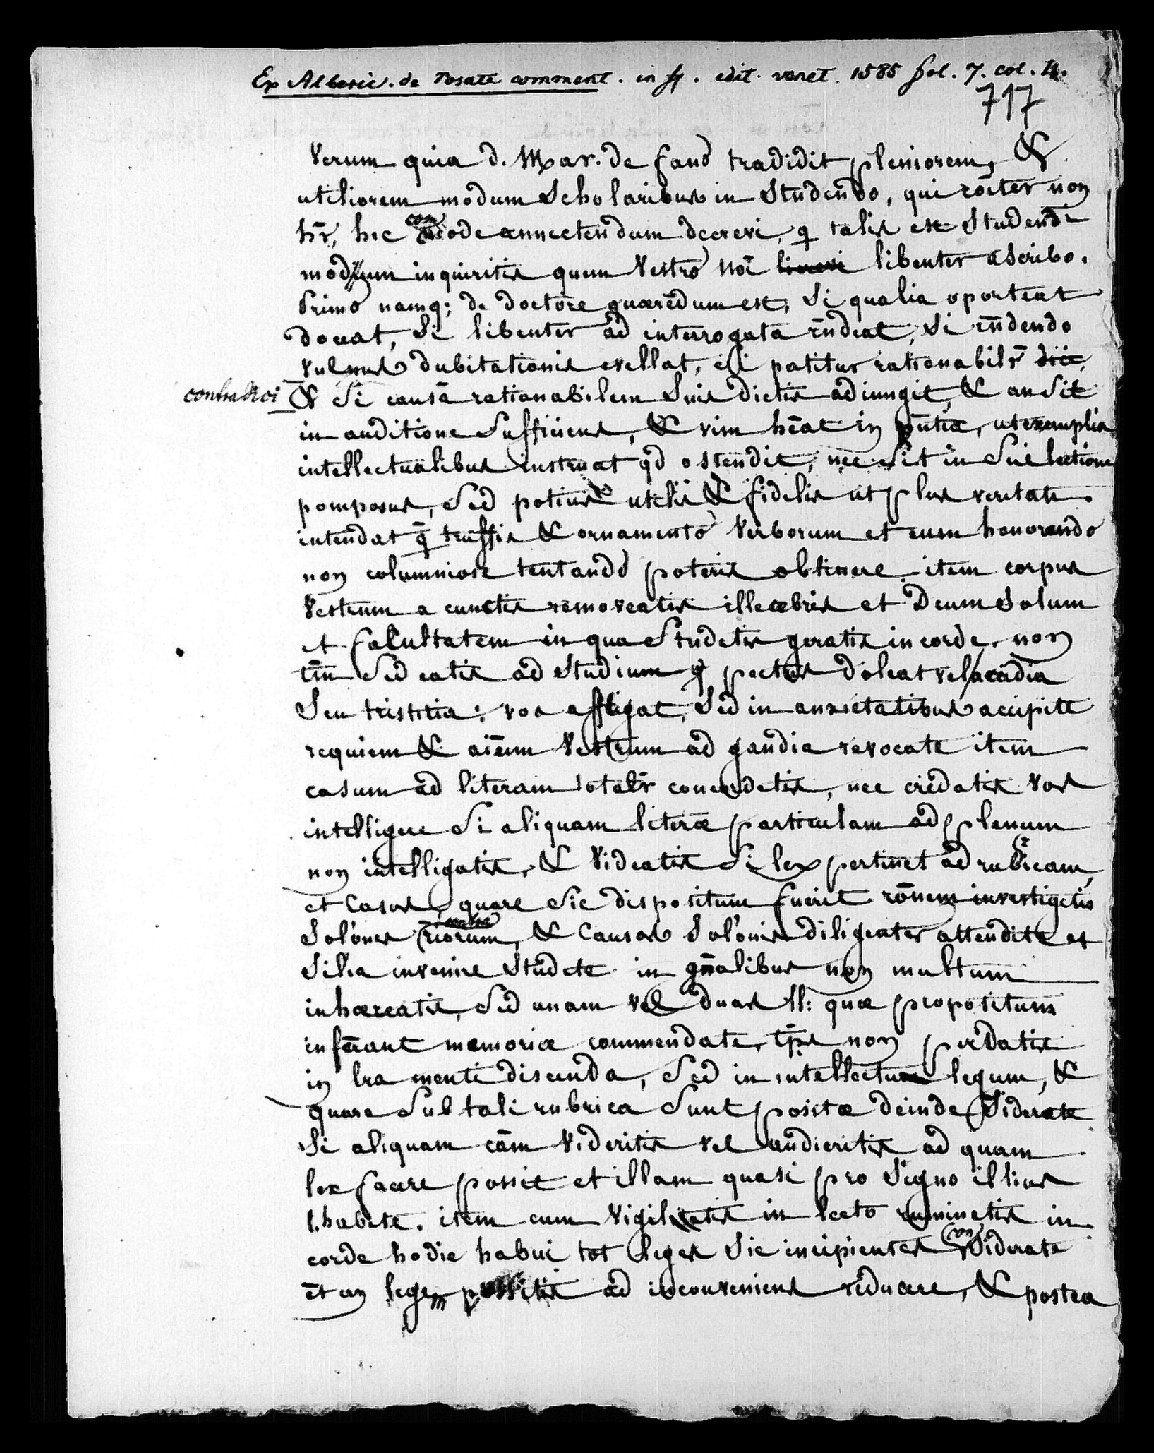 Ex Alberic. de Rosate comment. in ff. edit. venet. 1585 fol. 7. col. 4.
717
Verum quia d. Mar. de fano tradidit pleniorem, &
utiliorem modum Scholaribus in Studendo, qui cōiter non
hr̄, hic commode annectendum decrevi, q̄ talis est Studendi
modus inquiritis quem Vestro noī libenter ascribo.
Primo namq; de doctore quærēdum est, Si qualia oporteat
doceat, Si libenter ad interrogata rn̄deat, Si rn̄dendo
vulnus dubitationis evellat, Si patitur rationabilr̄
contradici & Si causā rationabilem Suis dictis adiungit, & an Sit
in auditione Sufficiens, & vim hēat in pn̄tia, ut exemplis
intellectualibus instruat qd ostendit, nec Sit in Sui lectione
pomposus, Sed potius utilis & fidelis ut plus veritati
intendat q̄ truffis & ornamento Verborum et eum honorando
non calumniose tentando poteris obtinere. item corpus
Vestrum a cunctis removeatis illecebris et Deum Solum
et facultatem in qua Studetis geratis in corde, non
tm̄ Sed eatis ad Studium q̄ pectus doleat vel acadia
Seu tristitia: vos affligat, Sed in anxietatibus accipite
requiem & aīum Vestrum ad gaudia revocate item
casum ad literam totalr̄ concordetis, nec credatis vos
intelligere Si aliquam literæ particulam ad plenum
non intelligatis, & Videatis Si lex pertinet ad rubricam,
et Casus, quare Sic dispositum fuerit rōnem investigetis
Solōnes riorum, & Causas Solōnis diligenter attendite et
Silia invenire Studete in gn̄alibus non multum
inhæreatis, Sed unam vel duas ll: quæ propositum
inferant memoriæ commendate, tp̄s non perdatis
in lra menti discenda, Sed in intellectum legum, &
quare Sub tali rubrica Sunt positæ deinde Siderate
Si aliquam cām Videritis vel audieritis ad quam
lex facere possit et illam quasi pro Signo illius
habete. item cum Vigiletis in lecto ruminetis in
corde hodie habui tot leges Sic incipientes considerate
et an legem possitis ad inconveniens reducere, & postea